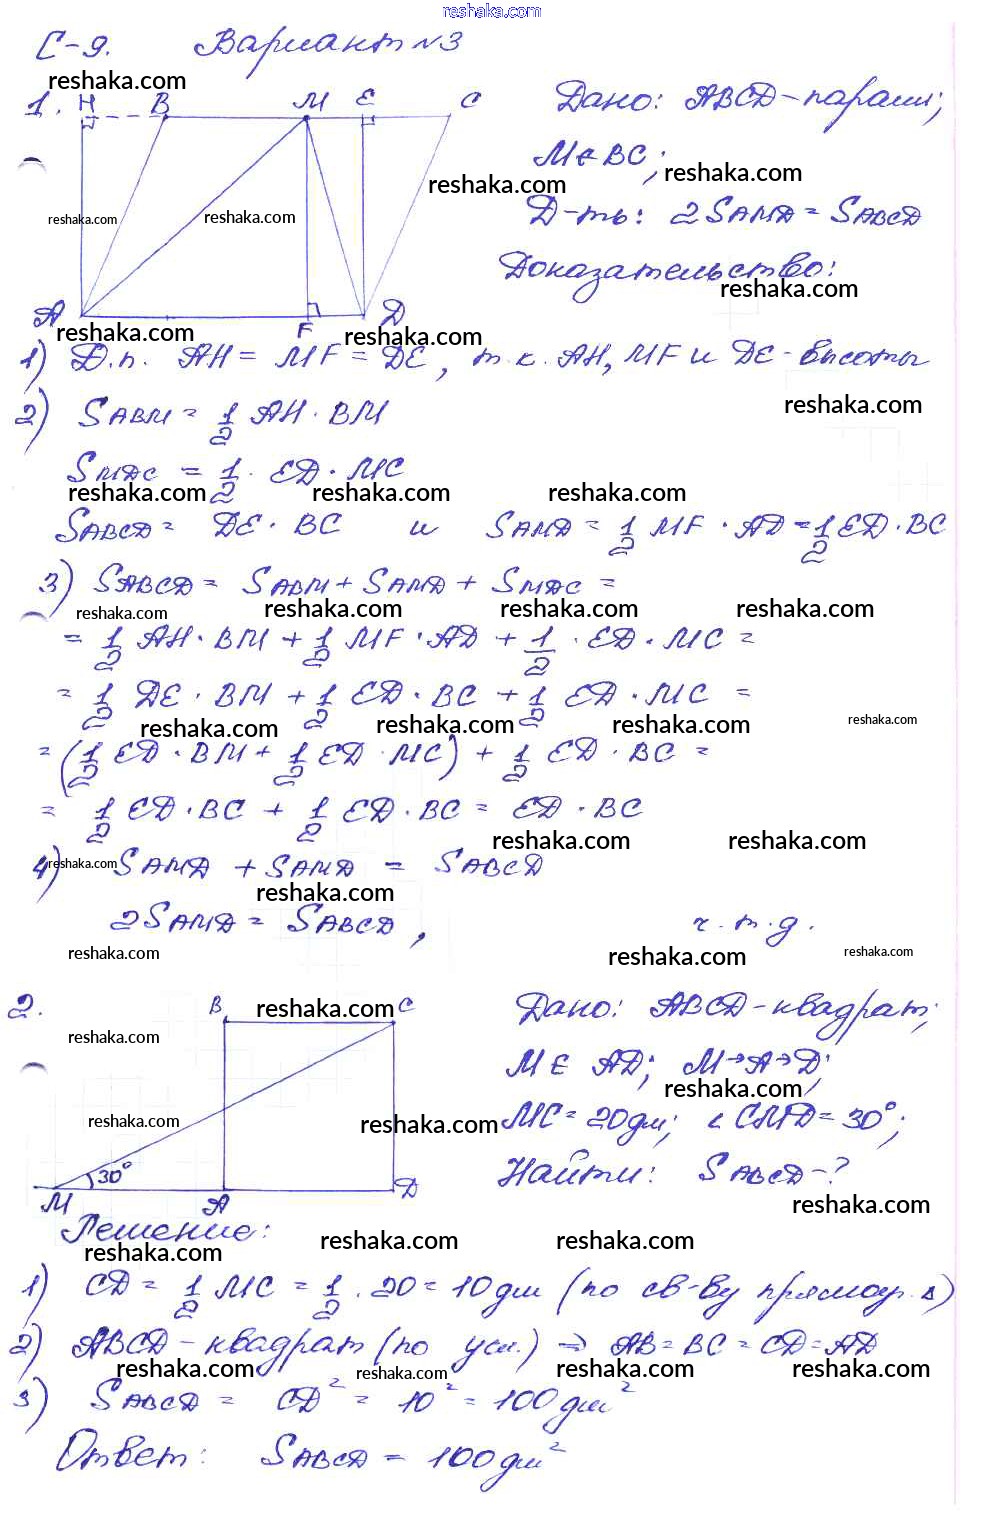 reshaka.com
С-9. Вариант №3
reshaka.com
1. H B M E C
Дано: ABCD - парал.;
M ∈ BC;
reshaka.com
reshaka.com
reshaka.com
reshaka.com
Д-ть: 2SAMD = SABCD
Доказательство:
reshaka.com
A F D
reshaka.com
reshaka.com
1) Д.п. AH = MF = DE, т.к. AH, MF и DE - высоты
reshaka.com
2) SABM = 1/2 AH · BM
SMDC = 1/2 · ED · MC
reshaka.com reshaka.com reshaka.com
SABCD = DE · BC и SAMD = 1/2 MF · AD = 1/2 ED · BC
3) SABCD = SABM + SAMD + SMDC =
reshaka.com reshaka.com reshaka.com reshaka.com
= 1/2 AH · BM + 1/2 MF · AD + 1/2 · ED · MC =
= 1/2 DE · BM + 1/2 ED · BC + 1/2 ED · MC =
reshaka.com reshaka.com reshaka.com reshaka.com
= (1/2 ED · BM + 1/2 ED · MC) + 1/2 ED · BC =
= 1/2 ED · BC + 1/2 ED · BC = ED · BC
reshaka.com reshaka.com
4) SAMD + SAMD = SABCD
reshaka.com
reshaka.com
2SAMD = SABCD, ч.т.д.
reshaka.com reshaka.com reshaka.com
2. B C
reshaka.com
Дано: ABCD - квадрат;
reshaka.com
M ∈ AD; M→A→D;
reshaka.com
MC = 20 дм; ∠CMD = 30°;
reshaka.com reshaka.com
Найти: SABCD - ?
30°
M A D
reshaka.com
Решение:
reshaka.com reshaka.com reshaka.com
1) CD = 1/2 MC = 1/2 · 20 = 10 дм (по св-ву прямоуг. Δ)
2) ABCD - квадрат (по усл.) ⇒ AB = BC = CD = AD
reshaka.com reshaka.com reshaka.com reshaka.com
3) SABCD = CD² = 10² = 100 дм²
Ответ: SABCD = 100 дм²